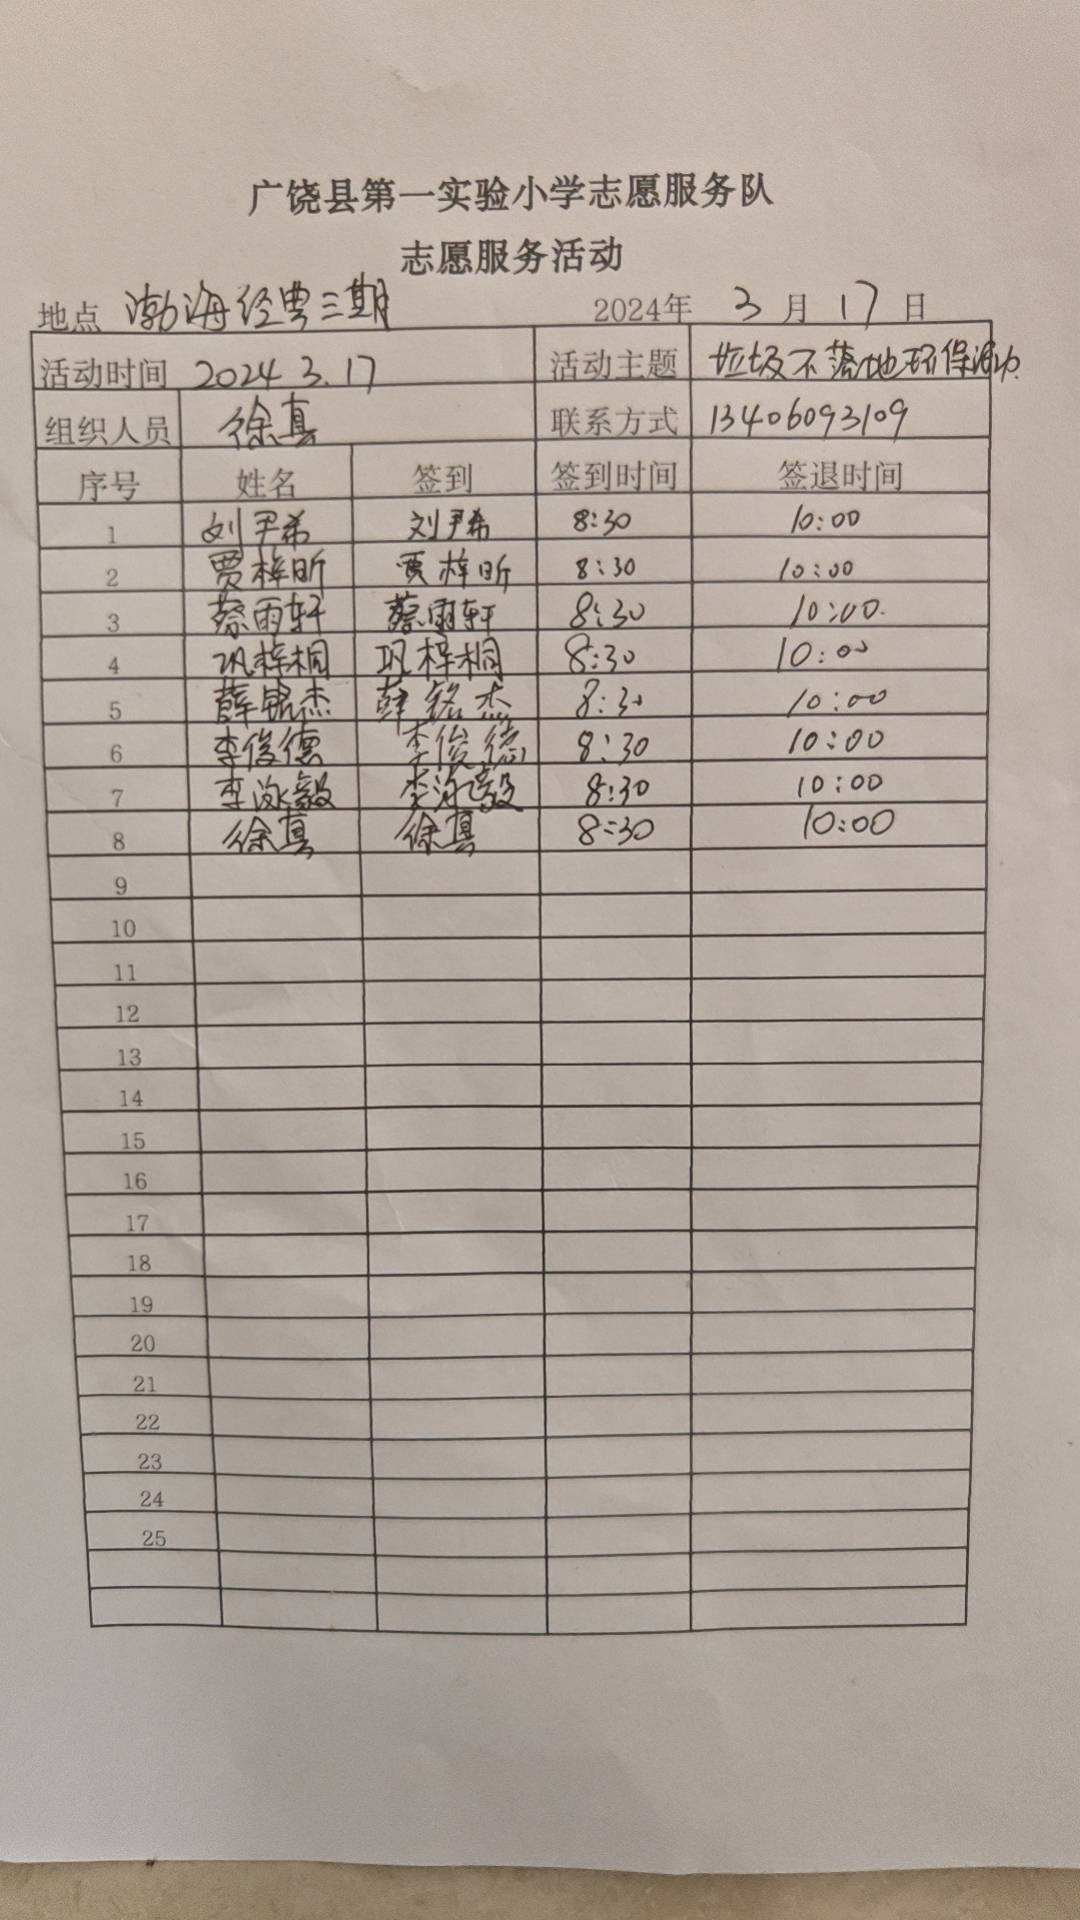 广饶县第一实验小学志愿服务队
志愿服务活动
地点 渤海经典三期 2024年 3 月 17 日
活动时间 2024 3.17 活动主题 垃圾不落地环保活动
组织人员 徐真 联系方式 13406093109
序号 姓名 签到 签到时间 签退时间
1 刘尹希 刘尹希 8:30 10:00
2 贾梓昕 贾梓昕 8:30 10:00
3 蔡雨轩 蔡雨轩 8:30 10:00
4 巩梓桐 巩梓桐 8:30 10:00
5 薛铭杰 薛铭杰 8:30 10:00
6 李俊德 李俊德 8:30 10:00
7 李泳毅 李泳毅 8:30 10:00
8 徐真 徐真 8:30 10:00
9
10
11
12
13
14
15
16
17
18
19
20
21
22
23
24
25